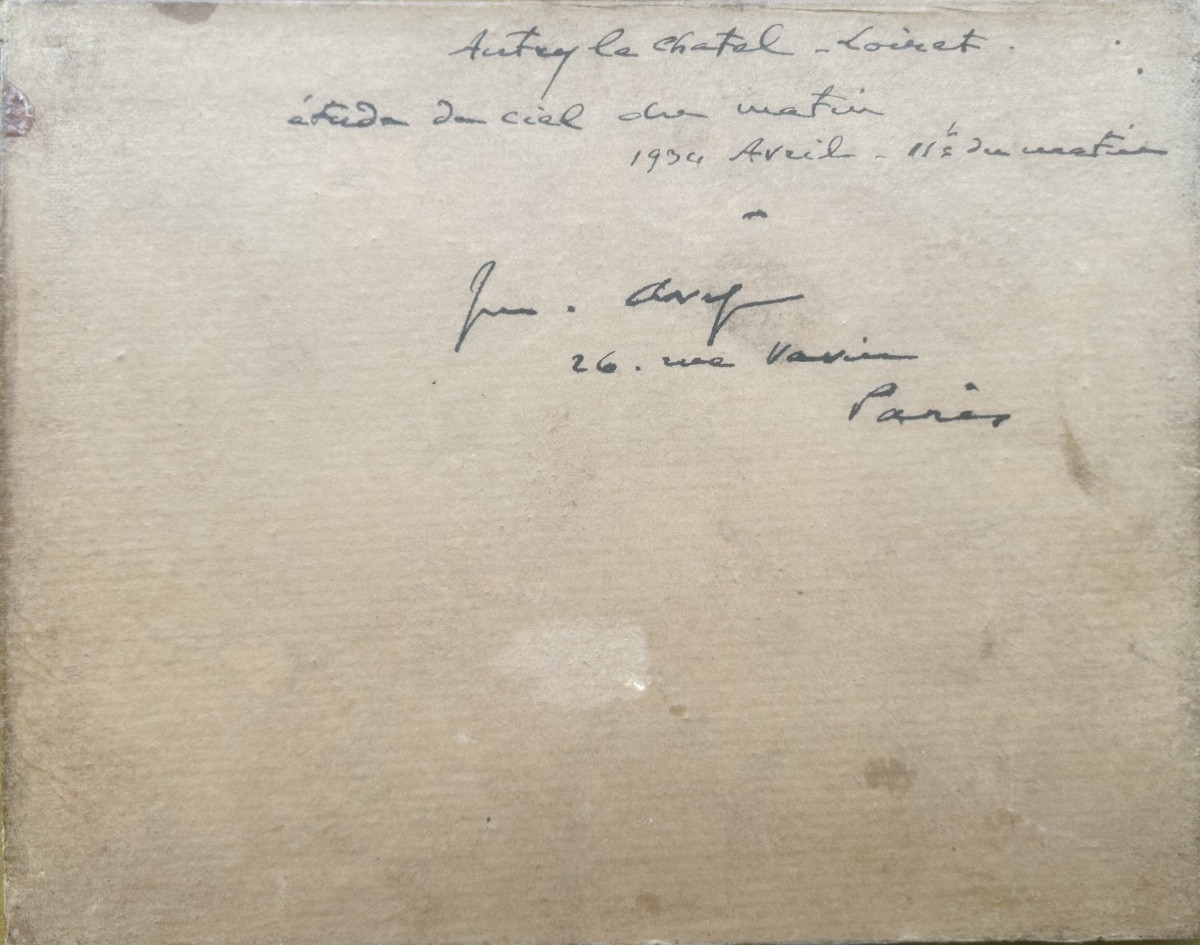 Autry le Chatel - Loiret.
étude de ciel du matin
1934 Avril - 11h du matin
26. rue Vavin
Paris